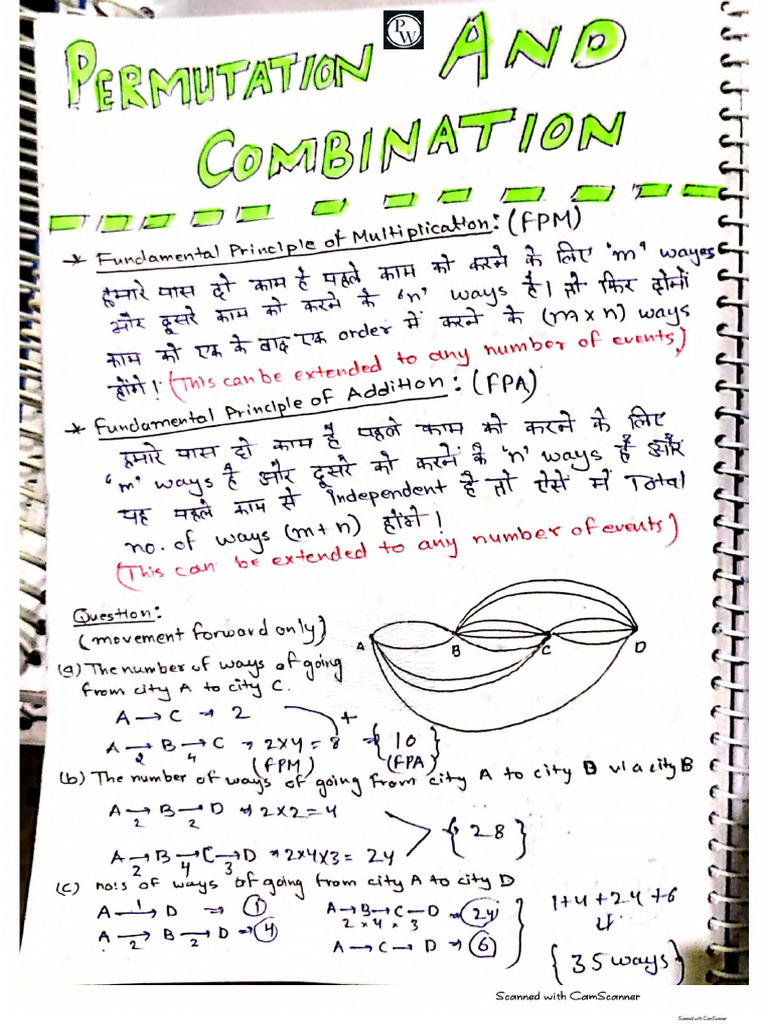 PW
PERMUTATION AND
COMBINATION
* Fundamental Principle of Multiplication: (FPM)
हमारे पास दो काम है पहले काम को करने के लिए 'm' wayes
और दूसरे काम को करने के 'n' ways है। तो फिर दोनों
काम को एक के बाद एक order में करने के (m x n) ways
होंगे! (This can be extended to any number of events)
* Fundamental Principle of Addition: (FPA)
हमारे पास दो काम है पहले काम को करने के लिए
'm' ways है और दूसरे को करनें के 'n' ways है और
यह पहले काम से independent है तो ऐसे में Total
no. of ways (m+n) होंगे!
(This can be extended to any number of events)
Question:
(movement forward only)
A B C D
(a) The number of ways of going
from city A to city C.
A → C → 2
+
A → B → C → 2x4 = 8 ⇒ {10}
2 4 (FPM) (FPA)
(b) The number of ways of going from city A to city B via city B
A → B → D ⇒ 2x2 = 4
2 2
{28}
A → B → C → D ⇒ 2x4x3 = 24
2 4 3
(c) no.s of ways of going from city A to city D
A → D ⇒ 1
1
A → B → C – D ⇒ 24
2 x 4 x 3
1+4+24+6
A → B → D ⇒ 4
2 2
A → C → D ⇒ 6
⇓
{35 ways}
Scanned with CamScanner
Scanned with CamScanner